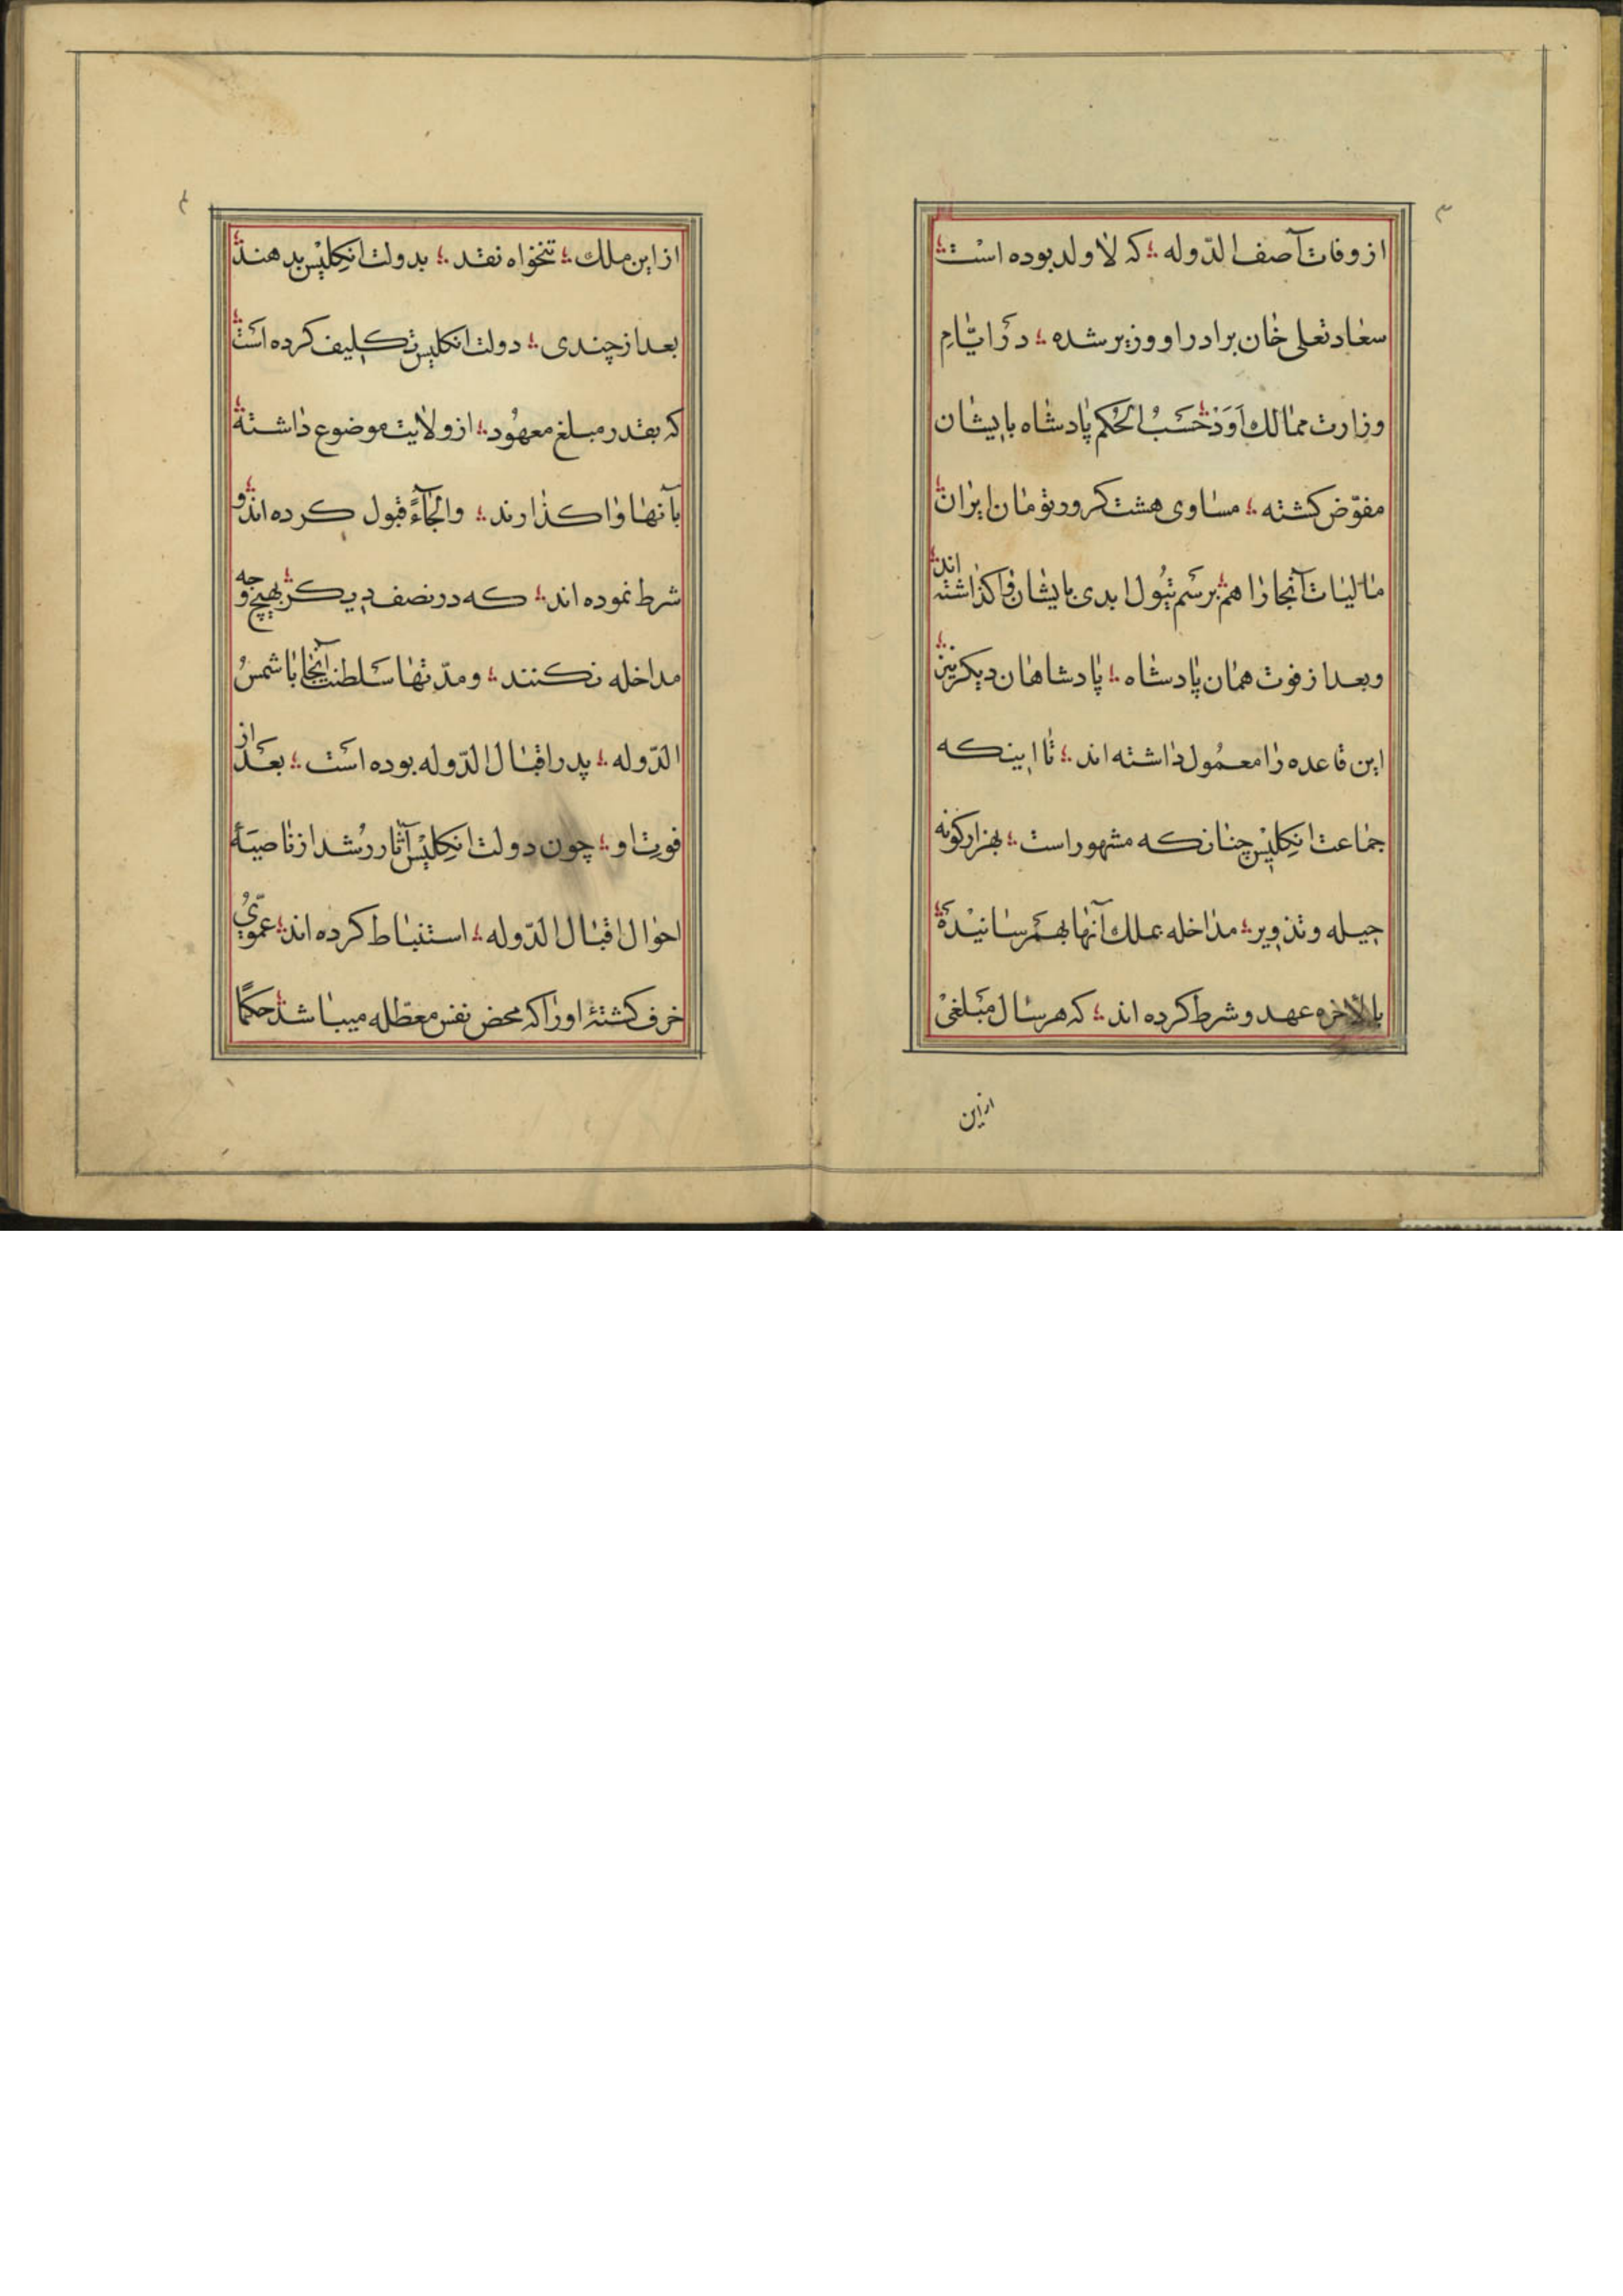 ۳
از وفات آصف الدّوله ؛ که لا ولد بوده است ؛
سعادتعلی خان برادر او وزیر شده ؛ در ایّامِ
وزارت ممالك اَوَدْ ؛ حَسَبُ الحُکم پادشاه بایشان
مفوّض کشته ؛ مساوی هشت کرور تومان ایران ؛
مالیات آنجا را هم ؛ برسم تیُول ابدی بایشان واکذاشته اند ؛
و بعد از فوت همان پادشاه ؛ پادشاهان دیکر نیز ؛
این قاعده را معمُول داشته اند ؛ تا اینکه
جماعت انکِلیْس چنانکه مشهور است ؛ بهزار کونه
حیله و تذویر ؛ مداخله بملك آنها بهمرسانیْدهٔ ؛
بالاخره عهد و شرط کرده اند ؛ که هر سال مَبلغیْ
از این
۴
از این ملك ؛ تنخواه نقد ؛ بدولت انکِلیْس بدهند ؛
بعد از چندی ؛ دولت انکلیس تکلیف کرده است ؛
که بقدر مبلغ معهُود ؛ از ولایت موضوع داشته ؛
بآنها واکذارند ؛ و الجآءً قبول کرده اند ؛ و
شرط نموده اند ؛ که در نصف دیکر ؛ بهیچ وجه
مداخله نکنند ؛ و مدّتها سلطنت آنجا با شمسُ
الدّوله ؛ پدر اقبال الدّوله بوده است ؛ بعد از
فوتِ او ؛ چون دولت انکِلیْس آثار رُشد از ناصیَهٔ
احوال اقبال الدّوله ؛ استنباط کرده اند ؛ عمّویُ
خرف کشتهٔ او را که محض نفس معطّله میباشد ؛ حکمًا